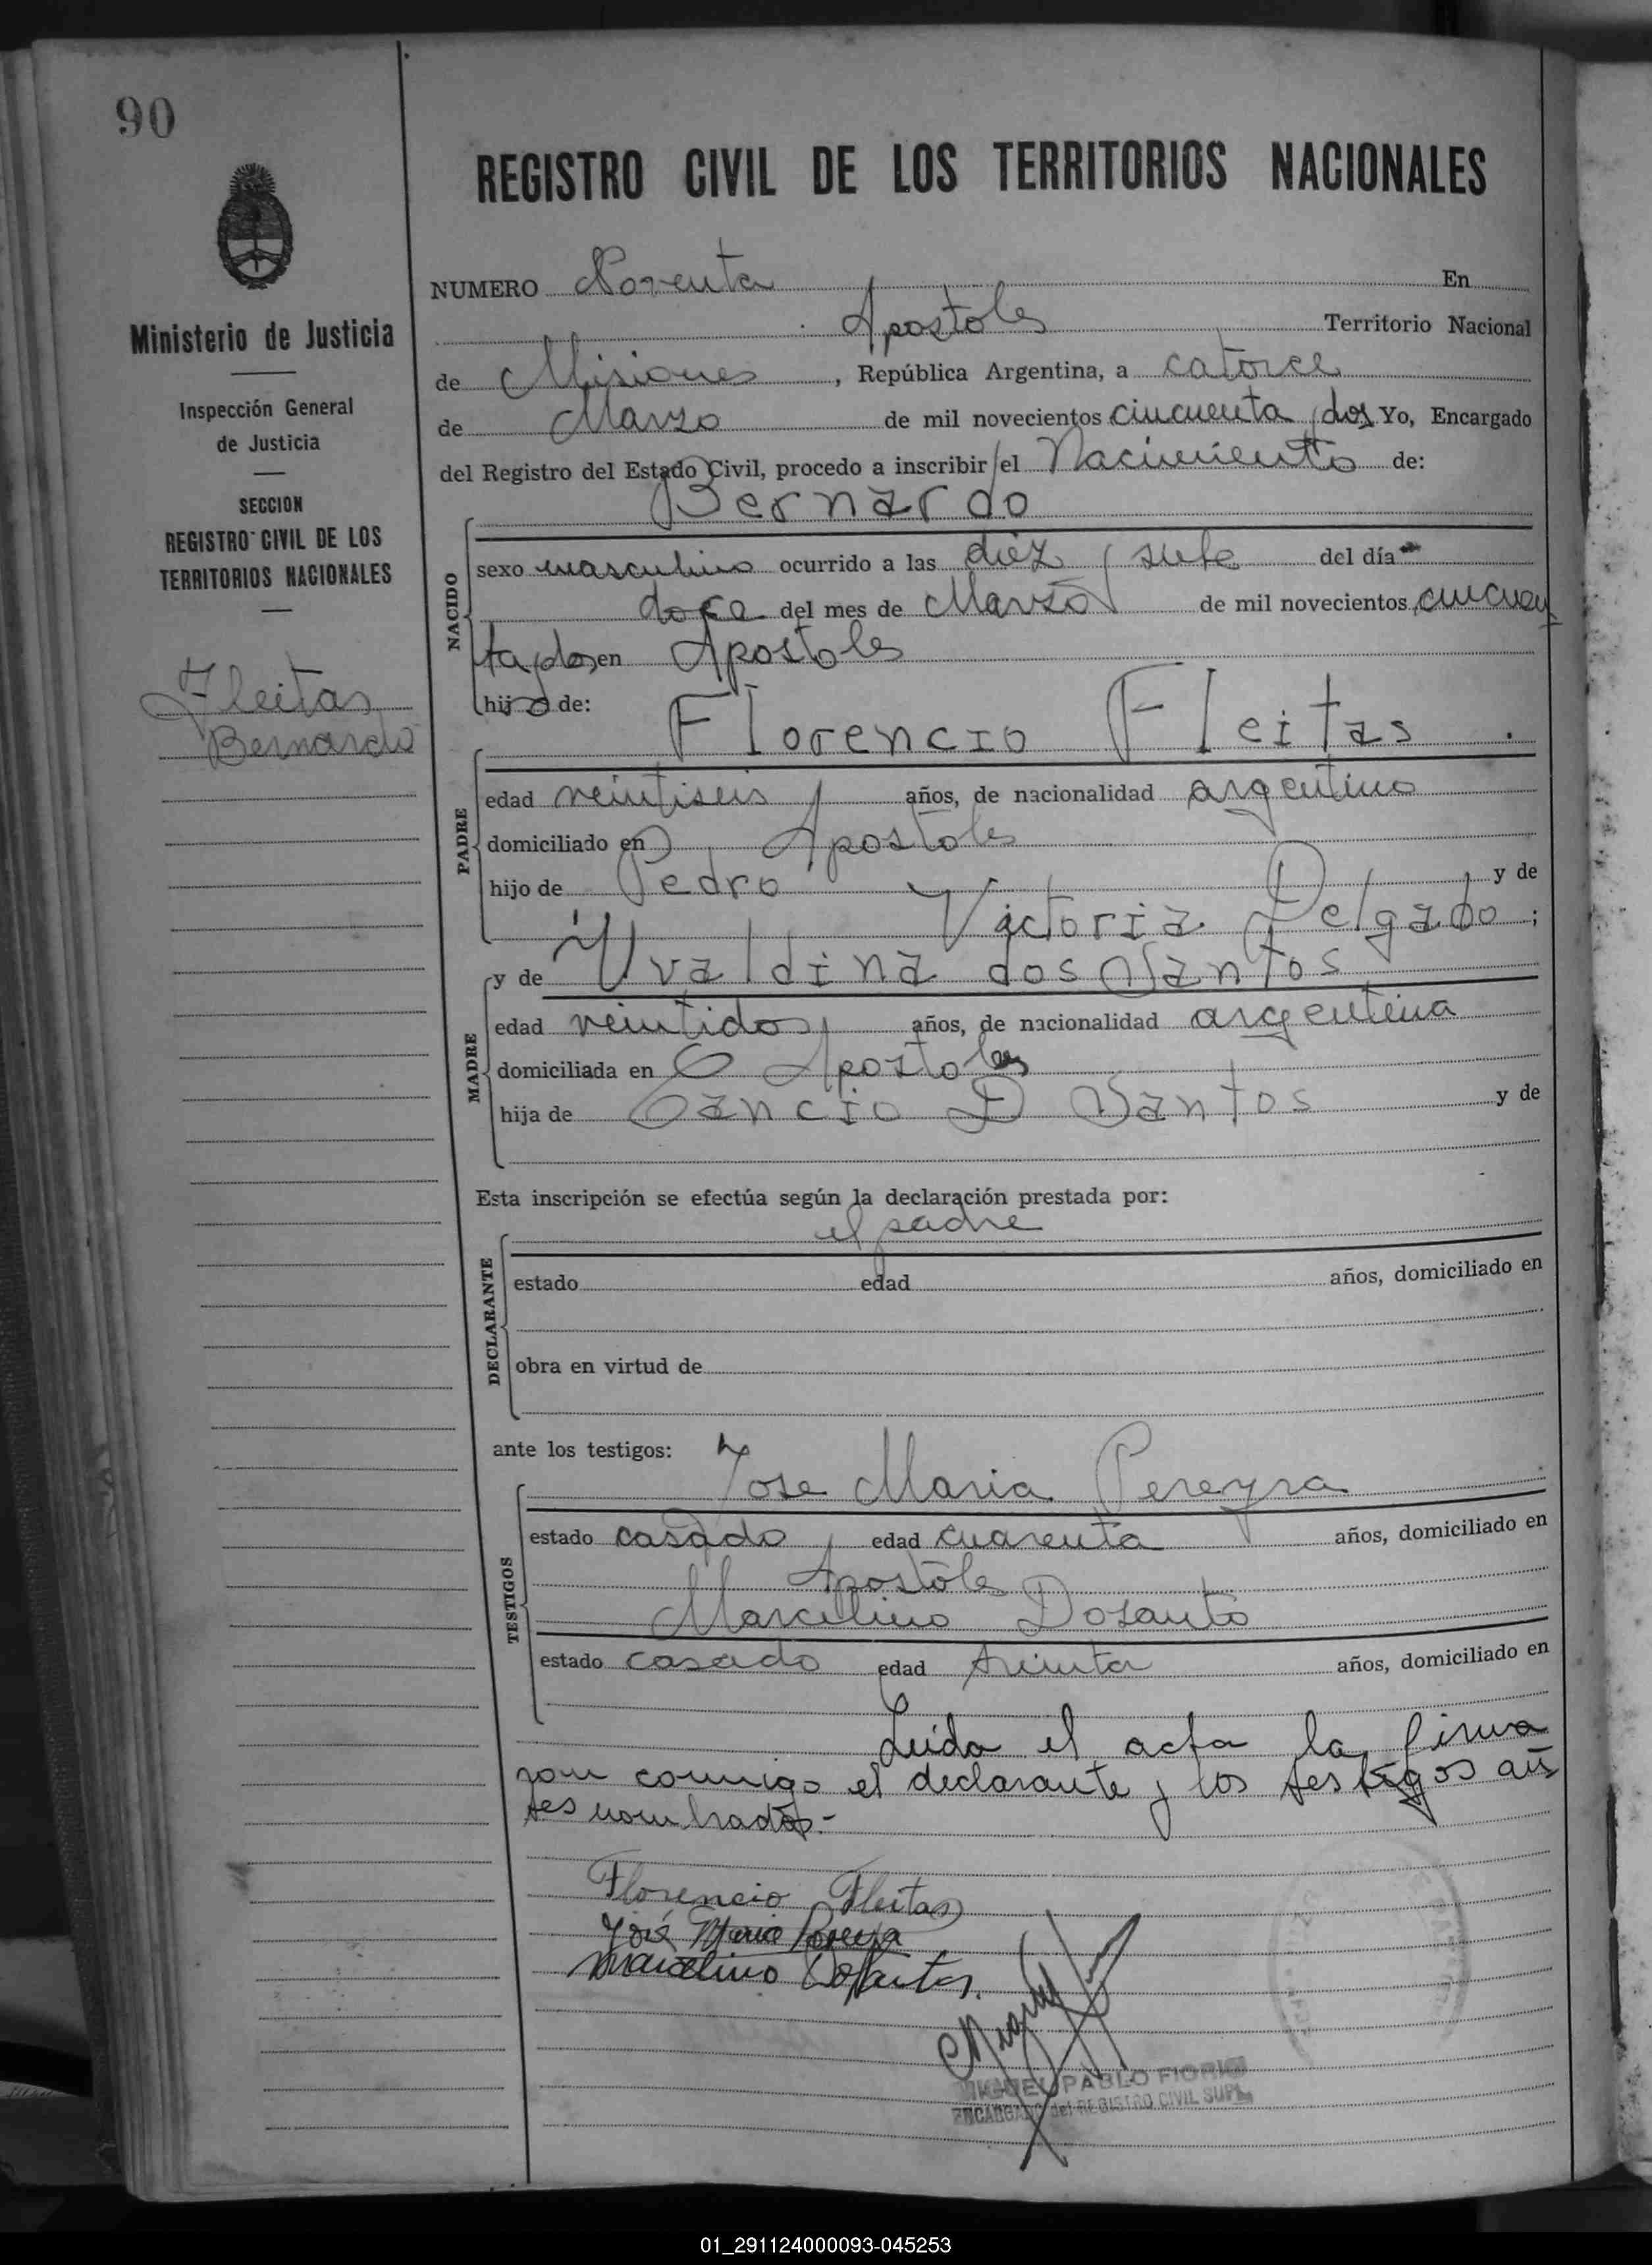 90
REGISTRO CIVIL DE LOS TERRITORIOS NACIONALES
Ministerio de Justicia
Inspección General
de Justicia
SECCION
REGISTRO CIVIL DE LOS
TERRITORIOS NACIONALES
Fleitas
Bernardo
NUMERO Noventa En
Apostoles Territorio Nacional
de Misiones, República Argentina, a catorce
de Marzo de mil novecientos cincuenta y dos Yo, Encargado
del Registro del Estado Civil, procedo a inscribir el Nacimiento de:
Bernardo
NACIDO
sexo masculino ocurrido a las diez y siete del día
doce del mes de Marzo de mil novecientos cincuen
ta y dos en Apostoles
hijo de:
Florencio Fleitas
PADRE
edad veintiseis años, de nacionalidad argentino
domiciliado en Apostoles
hijo de Pedro y de
Victoria Delgado;
MADRE
y de Uvaldina dos Santos
edad veintidos años, de nacionalidad argentina
domiciliada en Apostoles
hija de Cancio D Santos y de
Esta inscripción se efectúa según la declaración prestada por:
el padre
DECLARANTE
estado edad años, domiciliado en
obra en virtud de
ante los testigos:
Jose Maria Pereyra
TESTIGOS
estado casado edad cuarenta años, domiciliado en
Apostoles
Marcelino Dosanto
estado casado edad treinta años, domiciliado en
Leida el acta la firma
ron conmigo el declarante y los testigos an
tes nombrados.-
Florencio Fleitas
José Maria Pereyra
Marcelino Dosantos.
MIGUEL PABLO FIORIO
ENCARGADO del REGISTRO CIVIL SUPL.
01_291124000093-045253